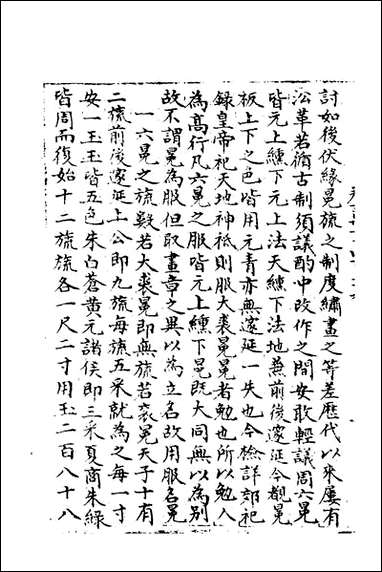 討如後伏緣冕旒之制度繡畫之等差歷代以來屢有
㳂革若循古制須議酌中改作之間安敢輕議周六冕
皆元上纁下元上法天纁下法地兼前後邃延今覩冕
板上下之色皆用元青亦無邃延一失也今檢詳郊祀
録皇帝祀天地神祇則服大裘冕冕者勉也所以勉入
為髙行凡六冕之服皆元上纁下冕既大同無以為别
故不謂冕為服但取畫章之異以為立名故用服名冕
一六冕之旒數若大裘冕即無旒若衮冕天子十有
二旒前後邃延上公即九旒每旒五采就為之每一寸
安一玉玉皆五色朱白蒼黄元諸侯即三采頁商朱緑
皆周而復始十二旒旒各一尺二寸用玉二百八十八